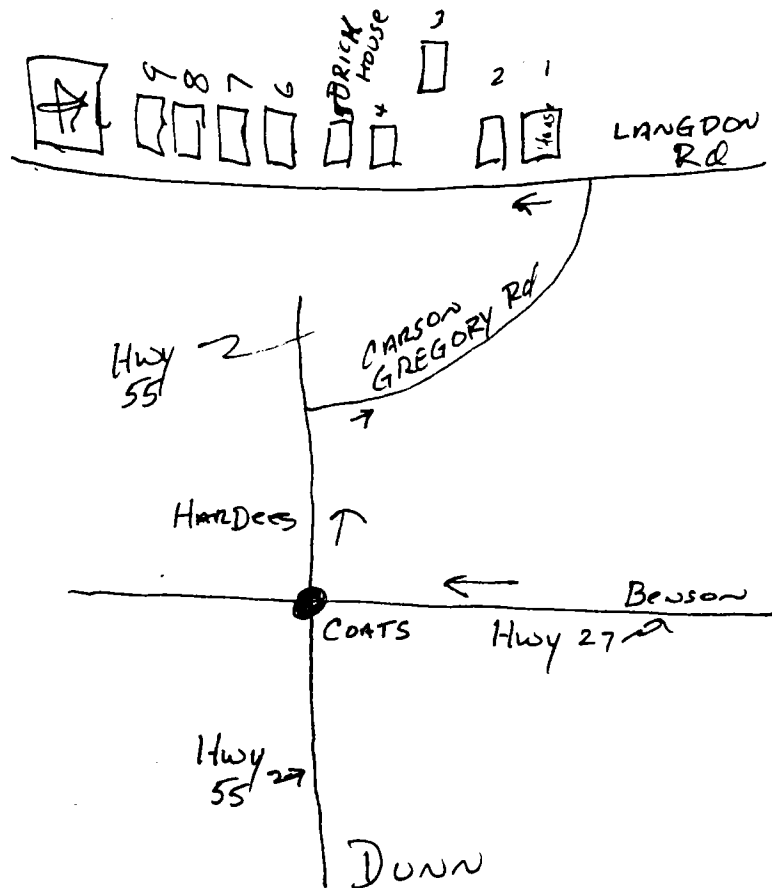 9 8 7 6 5 BRICK HOUSE 4 3 2 1
House
LANGDON
Rd
CARSON
GREGORY Rd
Hwy
55
HARDEES
BENSON
COATS
Hwy 27
Hwy
55
DUNN